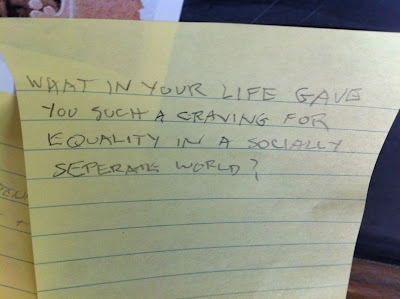 WHAT IN YOUR LIFE GAVE
YOU SUCH A CRAVING FOR
EQUALITY IN A SOCIALLY
SEPERATE WORLD?